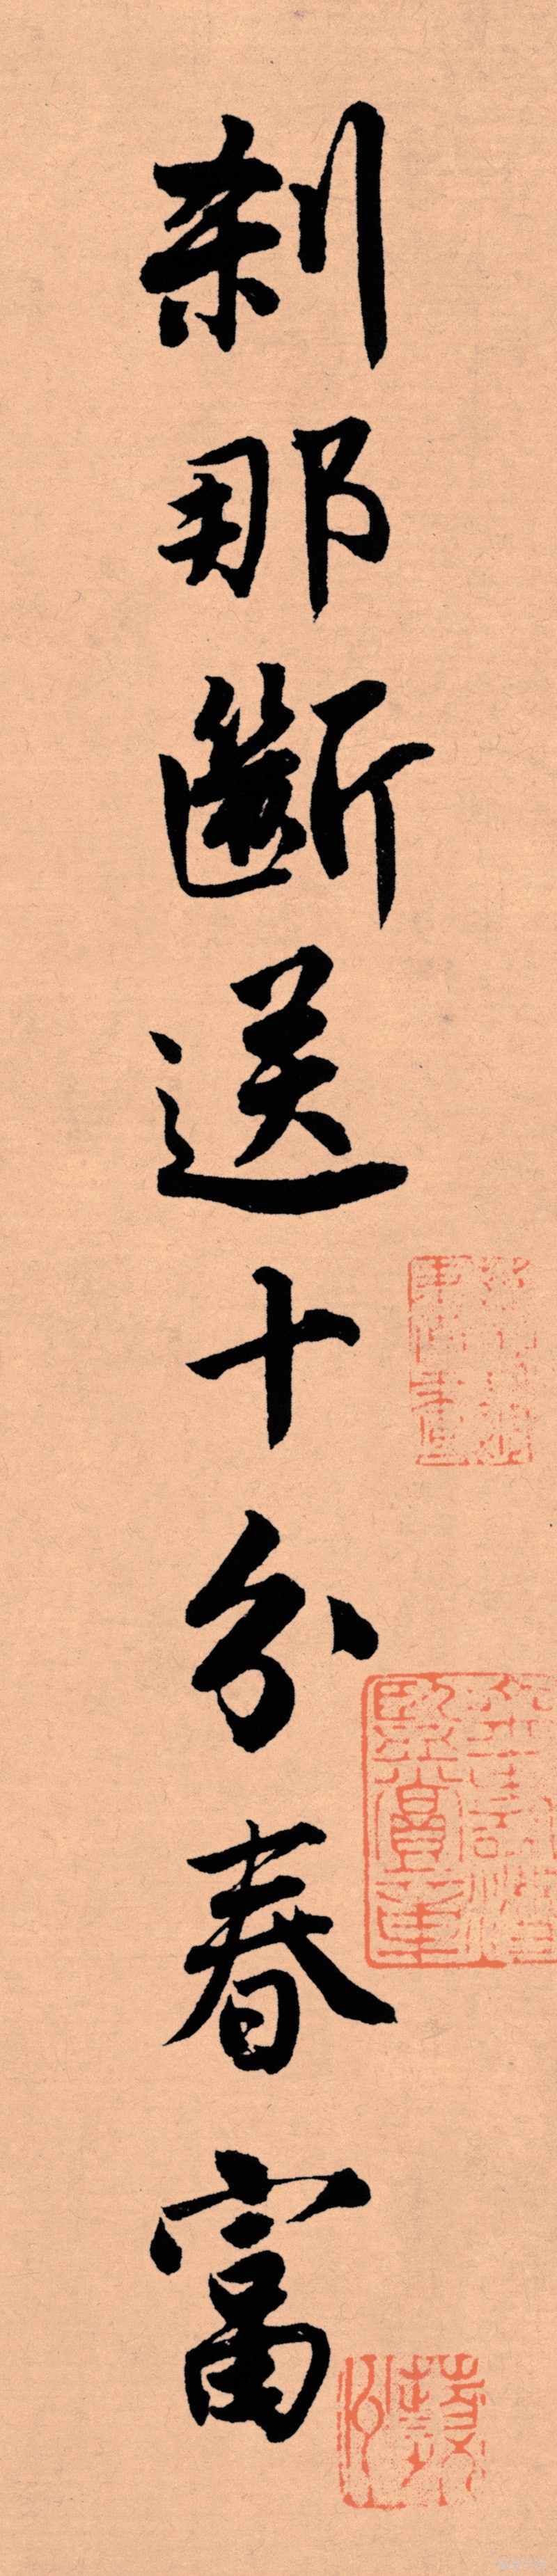 刹那斷送十分春富